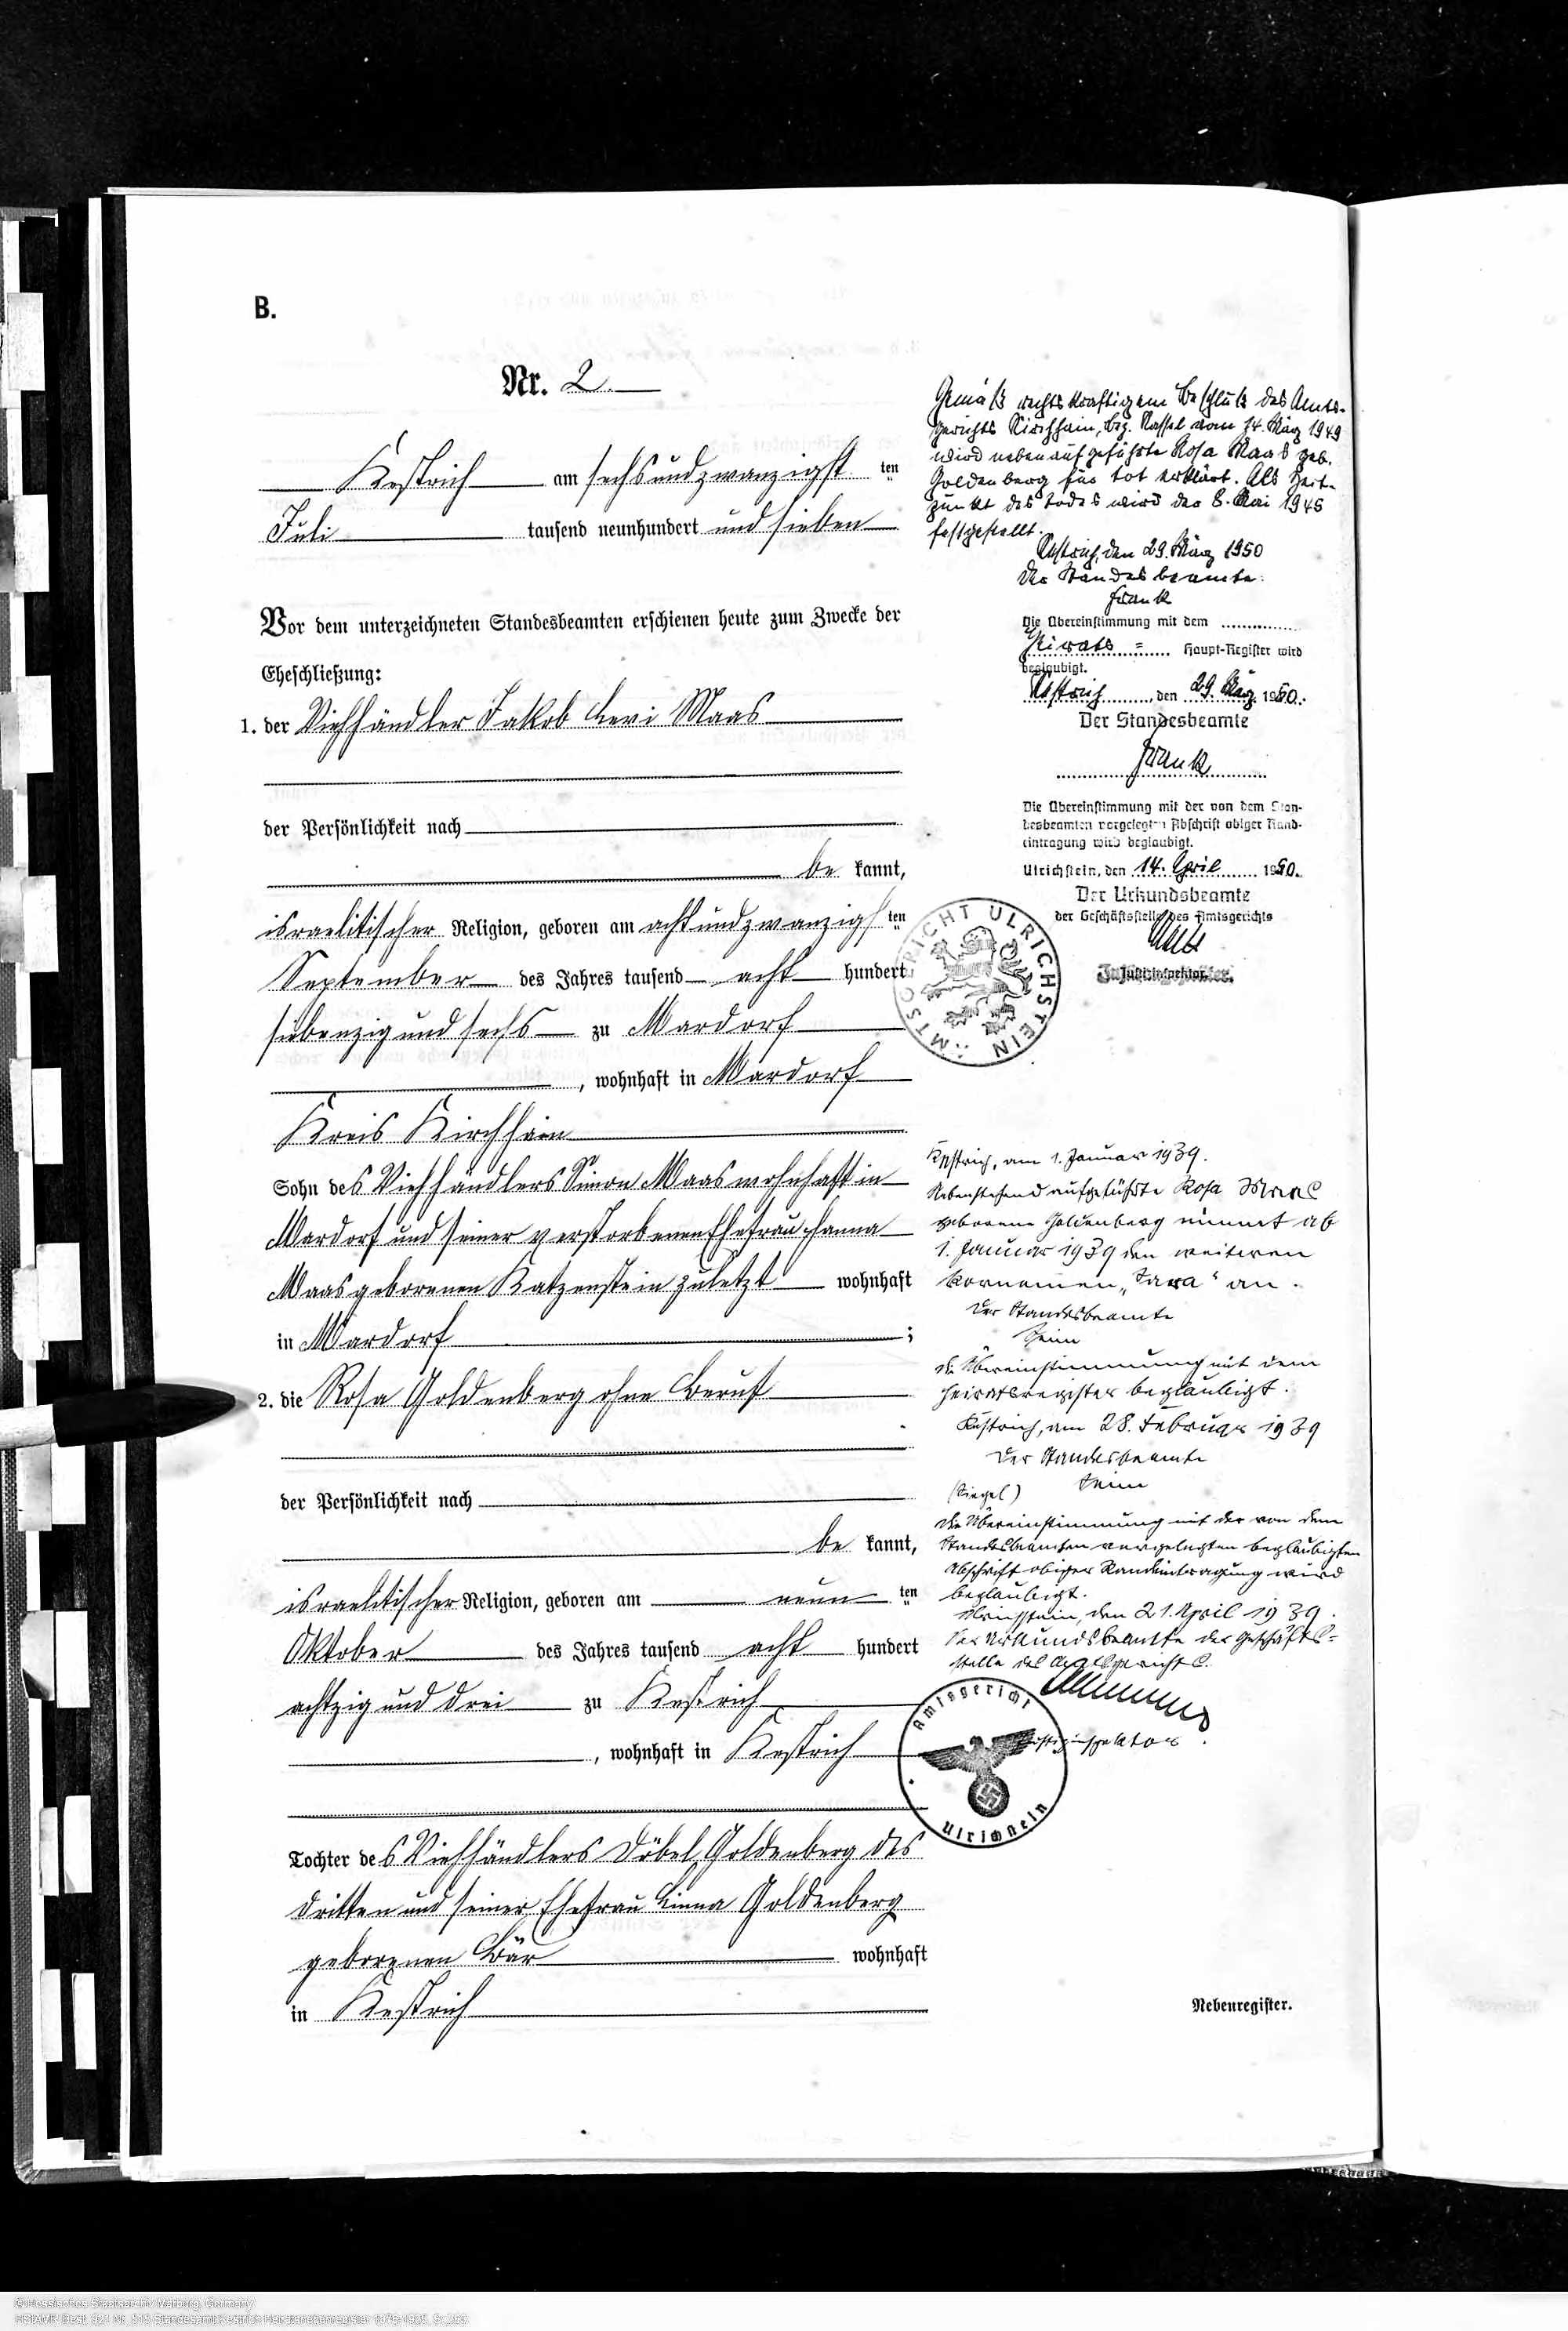 B.
Nr. 2.
Kestrich am sechsundzwanzigst ten
Juli tausend neunhundert und sieben
Vor dem unterzeichneten Standesbeamten erschienen heute zum Zwecke der
Eheschließung:
1. der Viehhändler Jakob Levi Maas
der Persönlichkeit nach
be kannt,
israelitischer Religion, geboren am achtundzwanzigsten
September des Jahres tausend acht hundert
siebenzig und sechs zu Mardorf
, wohnhaft in Mardorf
Kreis Kirchhain
Sohn des Viehhändlers Simon Maas wohnhaft in
Mardorf und seiner verstorbenen Ehefrau Hanna
Maas geborenen Katzenstein zuletzt wohnhaft
in Mardorf ;
2. die Rosa Goldenberg ohne Beruf
der Persönlichkeit nach
be kannt,
israelitischer Religion, geboren am neun ten
Oktober des Jahres tausend acht hundert
achtzig und drei zu Kestrich
, wohnhaft in Kestrich
Tochter des Viehhändlers Döbel Goldenberg des
dritten und seiner Ehefrau Linna Goldenberg
geborenen Bär wohnhaft
in Kestrich
Gemäß rechtskräftigem Beschluß des Amts-
gerichts Kirchhain, Bez. Kassel vom 14. März 1949
wird neben aufgeführte Rosa Maas geb.
Goldenberg für tot erklärt. Als Zeit-
punkt des Todes wird der 8. Mai 1945
festgestellt.
Kestrich, den 29. März 1950
Der Standesbeamte:
Frank
Die Übereinstimmung mit dem
Heirats- Haupt-Register wird
beglaubigt.
Kestrich, den 29. März 1950.
Der Standesbeamte
Frank
Die Übereinstimmung mit der von dem Stan-
desbeamten vorgelegten Abschrift obiger Rand-
eintragung wird beglaubigt.
Ulrichstein, den 14. April 1950.
Der Urkundsbeamte
der Geschäftsstelle des Amtsgerichts
Justizinspektor.
AMTSGERICHT ULRICHSTEIN
Kestrich, am 1. Januar 1939.
Nebenstehend aufgeführte Rosa Maas
geborene Goldenberg nimmt ab
1. Januar 1939 den weiteren
Vornamen „Sara“ an.
Der Standesbeamte
die Übereinstimmung mit dem
Heiratsregister beglaubigt.
Kestrich, am 28. Februar 1939
Der Standesbeamte
(Siegel)
Die Übereinstimmung mit der von dem
Standesbeamten vorgelegten beglaubigten
Abschrift obiger Randeintragung wird
beglaubigt.
Ulrichstein, den 21. April 1939.
Der Urkundsbeamte der Geschäfts-
stelle des Amtsgerichts.
Justizinspektor.
Amtsgericht Ulrichstein
Nebenregister.